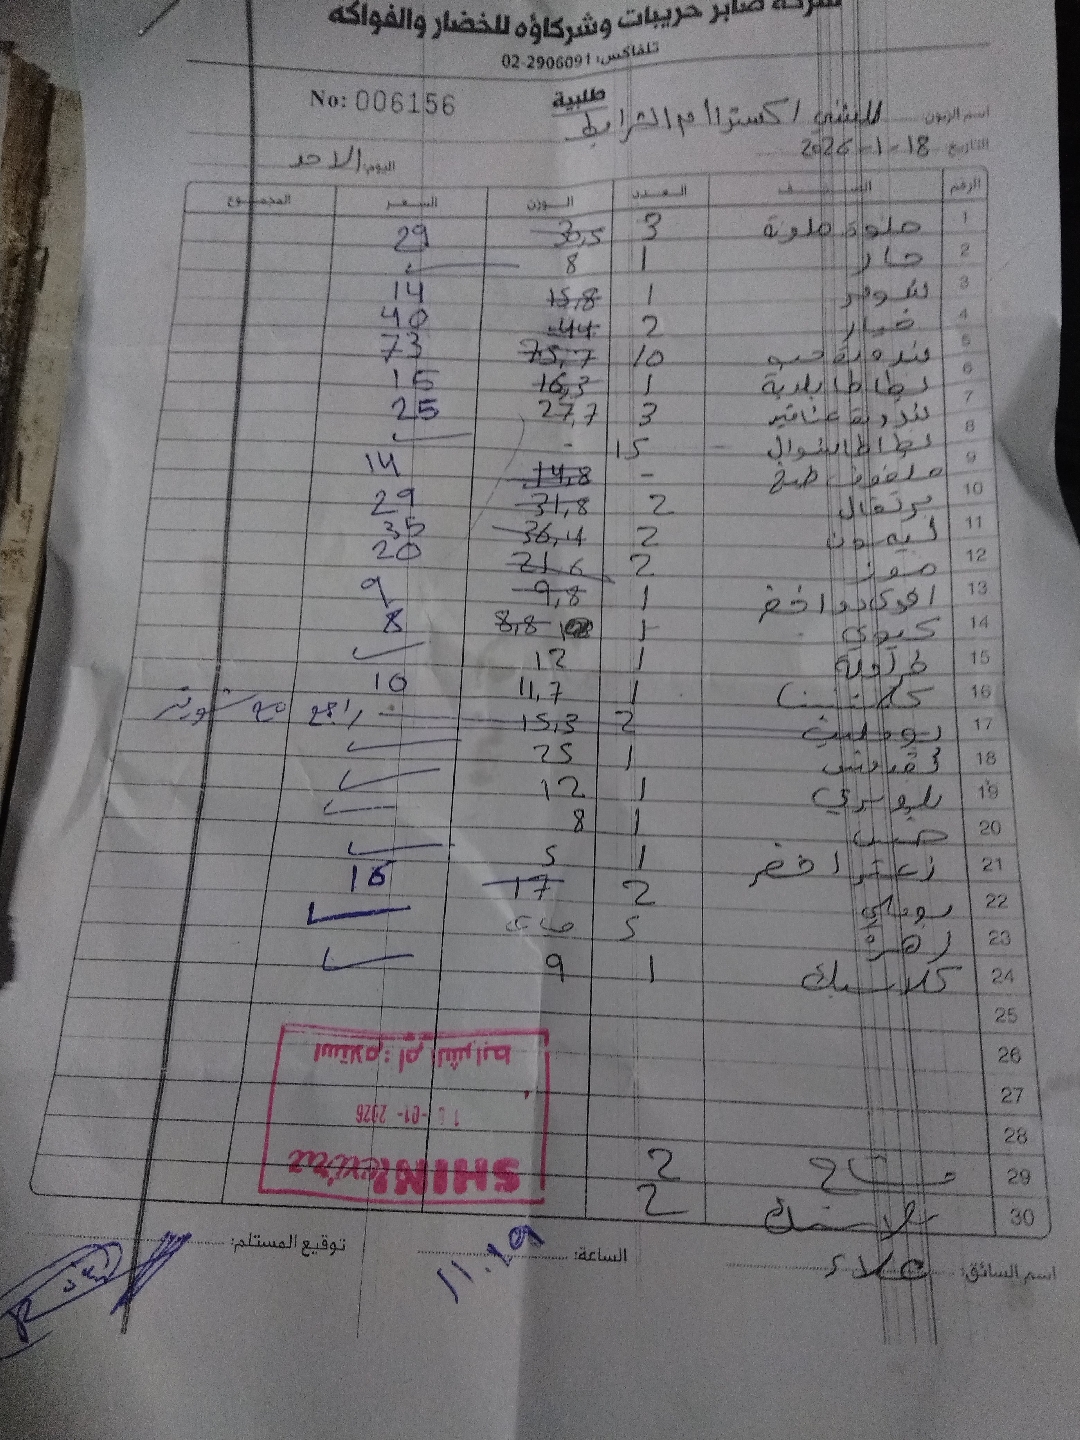 شركة صابر حريبات وشركاؤه للخضار والفواكه
تلفاكس: 02-2906091
No: 006156
طلبية
اسم الزبون: للشني اكسترا ام الشرايط
التاريخ: 18-1-2026
اليوم: الاحد
الرقم الصنف العدد الوزن السعر المجموع
1 حلوة ملونة 3 30,5 29
2 حار 1 8
3 1 15,8 14
4 خيار 2 44 40
5 بندورة 10 75,7 73
6 بطاطا بلدية 1 16,3 15
7 بندورة عناقيد 3 27,7 25
8 بطاطا شوال 15 -
9 ملفوف طبخ - 14,8 14
10 برتقال 2 31,8 29
11 ليمون 2 36,4 35
12 موز 2 21,6 20
13 افوكادو اخضر 1 9,8 9
14 كيوي 1 8,8 8
15 فراولة 1 12
16 كلمنتينا 1 11,7 10
17 بوملي 2 15,3 راجع مع
18 1 25
19 بلوبيري 1 12
20 1 8
21 زعتر اخضر 1 5
22 2 17 16
23 زهرة 5
24 كلاسيك 1 9
25
26
27
28
29 2
30 بلاستيك 2
استلام: ام الشرايط
-01- 2026
SHINI extra
اسم السائق: علاء
الساعة: 11:19
توقيع المستلم: